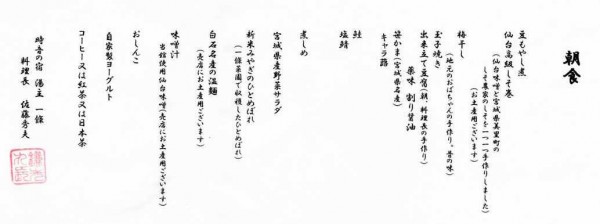 朝食
豆もやし煮
仙台高級しそ巻
(仙台味噌と宮城県美里町の
しそ農家のしそを一つ一つ手作りしました)
(お土産用ございます)
梅干し
(地元のおばちゃんの手作り。昔の味)
玉子焼き
出来立て豆富(朝、料理長の手作り)
薬味 割り醤油
笹かま(宮城県名産)
キャラ蕗
鮭
塩鯖
煮しめ
宮城県産野菜サラダ
新米みやぎのひとめぼれ
(一條菜園で収穫したひとめぼれ)
白石名産の温麺
(売店にお土産用ございます)
味噌汁
当館使用仙台味噌(売店にお土産用ございます)
おしんこ
自家製ヨーグルト
コーヒー又は紅茶又は日本茶
時音の宿 湯主 一條
料理長 佐藤秀夫